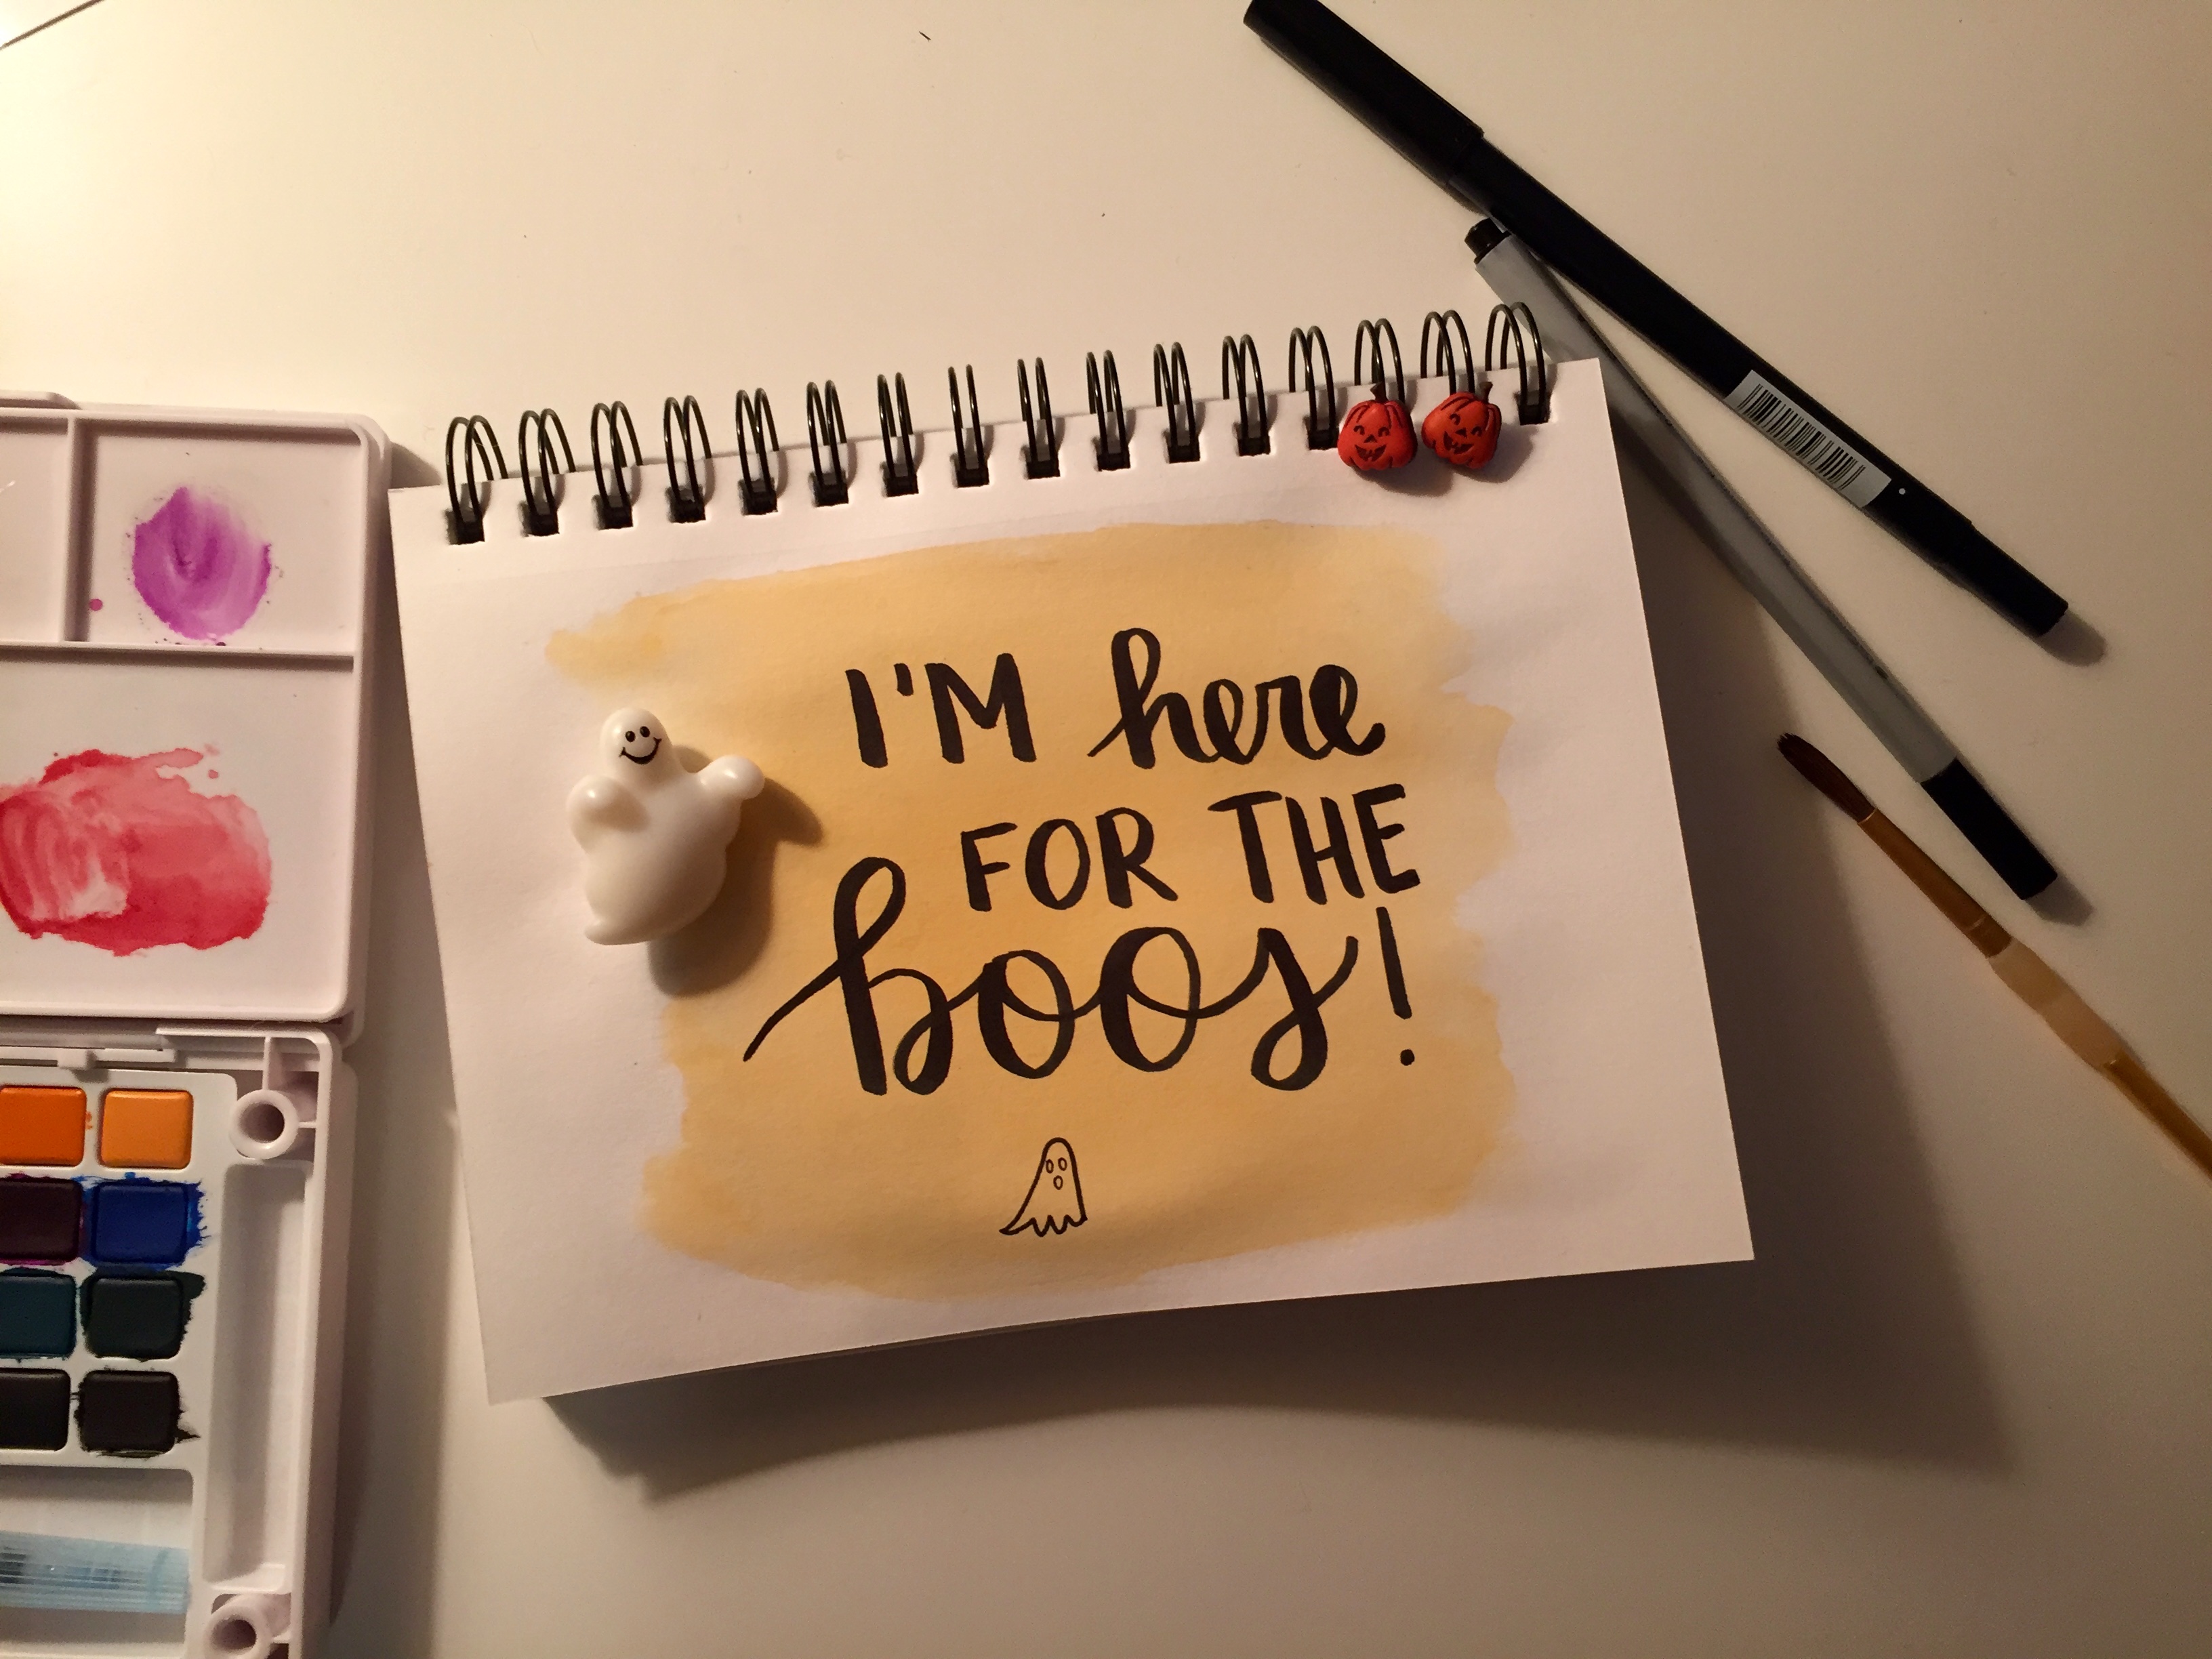 I'M here
FOR THE
boos!